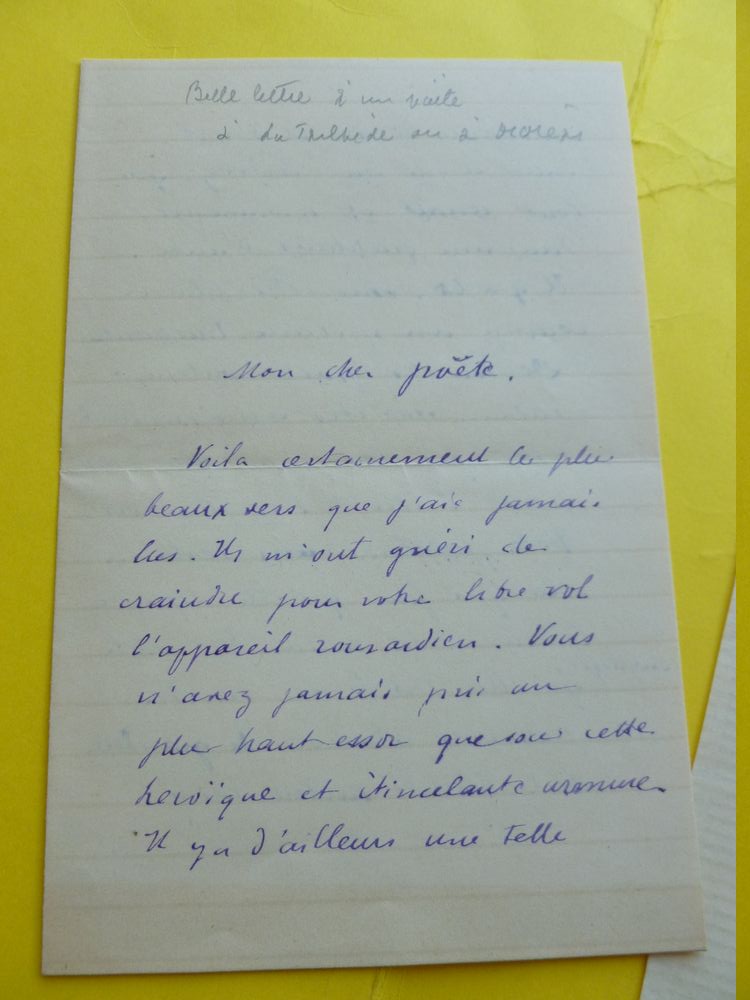 Belle lettre à un poète
à La Tailhède ou à Moréas
Mon cher poëte,
Voila certainement les plus
beaux vers que j'aie jamais
lus. Ils m'ont guéri de
craindre pour votre libre vol
l'appareil ronsardien. Vous
n'avez jamais pris un
plus haut essor que sous cette
heroïque et étincelante armure.
Il y a d'ailleurs une telle